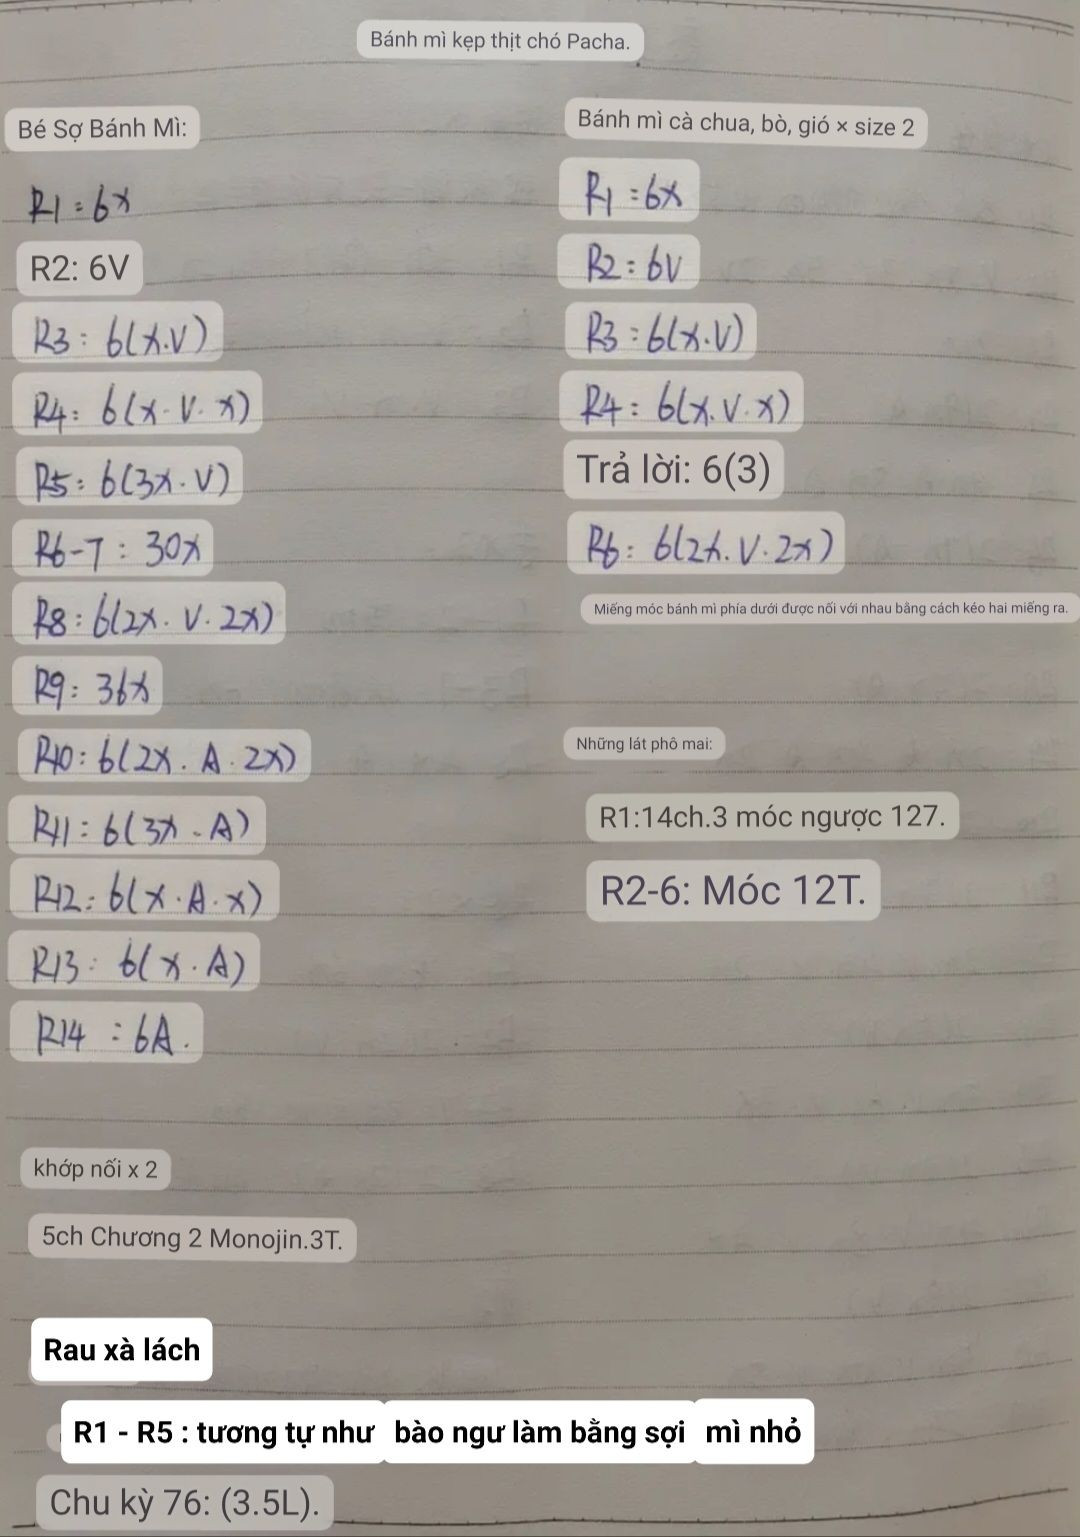 Bánh mì kẹp thịt chó Pacha.
Bé Sợ Bánh Mì:
R1 : 6x
R2: 6V
R3 : 6(x.V)
R4 : 6(x.V.x)
R5 : 6(3x.V)
R6-7 : 30x
R8 : 6(2x.V.2x)
R9 : 36x
R10 : 6(2x.A.2x)
R11 : 6(3x.A)
R12 : 6(x.A.x)
R13 : 6(x.A)
R14 : 6A.
khớp nối x 2
5ch Chương 2 Monojin.3T.
Rau xà lách
R1 - R5 : tương tự như bào ngư làm bằng sợi mì nhỏ
Chu kỳ 76: (3.5L).
Bánh mì cà chua, bò, gió × size 2
R1 : 6x
R2 : 6V
R3 : 6(x.V)
R4 : 6(x.V.x)
Trả lời: 6(3)
R6 : 6(2x.V.2x)
Miếng móc bánh mì phía dưới được nối với nhau bằng cách kéo hai miếng ra.
Những lát phô mai:
R1:14ch.3 móc ngược 127.
R2-6: Móc 12T.